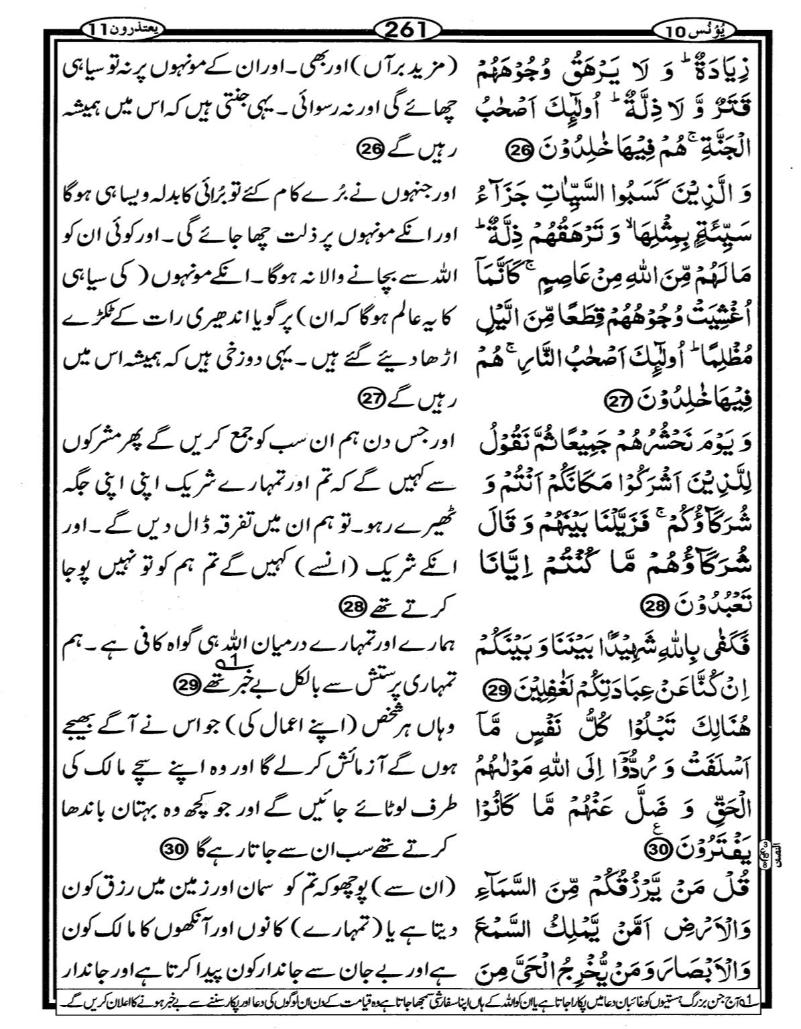 يُوْنُس 10
261
يعتذرون 11
زِيَادَةٌ ؕ وَ لَا يَرْهَقُ وُجُوْهَهُمْ
قَتَرٌ وَّ لَا ذِلَّةٌ ؕ اُولٰٓئِكَ اَصْحٰبُ
الْجَنَّةِ ۚ هُمْ فِيْهَا خٰلِدُوْنَ ㉖
وَ الَّذِيْنَ كَسَبُوا السَّيِّاٰتِ جَزَآءُ
سَيِّئَةٍۭ بِمِثْلِهَا ۙ وَ تَرْهَقُهُمْ ذِلَّةٌ ؕ
مَا لَهُمْ مِّنَ اللّٰهِ مِنْ عَاصِمٍ ۚ كَاَنَّمَاۤ
اُغْشِيَتْ وُجُوْهُهُمْ قِطَعًا مِّنَ الَّيْلِ
مُظْلِمًا ؕ اُولٰٓئِكَ اَصْحٰبُ النَّارِ ۚ هُمْ
فِيْهَا خٰلِدُوْنَ ㉗
وَ يَوْمَ نَحْشُرُهُمْ جَمِيْعًا ثُمَّ نَقُوْلُ
لِلَّذِيْنَ اَشْرَكُوْا مَكَانَكُمْ اَنْتُمْ وَ
شُرَكَآؤُكُمْ ۚ فَزَيَّلْنَا بَيْنَهُمْ وَ قَالَ
شُرَكَآؤُهُمْ مَّا كُنْتُمْ اِيَّانَا
تَعْبُدُوْنَ ㉘
فَكَفٰى بِاللّٰهِ شَهِيْدًۢا بَيْنَنَا وَ بَيْنَكُمْ
اِنْ كُنَّا عَنْ عِبَادَتِكُمْ لَغٰفِلِيْنَ ㉙
هُنَالِكَ تَبْلُوْا كُلُّ نَفْسٍ مَّاۤ
اَسْلَفَتْ وَ رُدُّوْۤا اِلَى اللّٰهِ مَوْلٰىهُمُ
الْحَقِّ وَ ضَلَّ عَنْهُمْ مَّا كَانُوْا
يَفْتَرُوْنَ ㉚
قُلْ مَنْ يَّرْزُقُكُمْ مِّنَ السَّمَآءِ
وَالْاَرْضِ اَمَّنْ يَّمْلِكُ السَّمْعَ
وَالْاَبْصَارَ وَ مَنْ يُّخْرِجُ الْحَيَّ مِنَ
(مزید برآں) اور بھی ۔ اور ان کے مونہوں پر نہ تو سیاہی
چھائے گی اور نہ رسوائی ۔ یہی جنتی ہیں کہ اس میں ہمیشہ
رہیں گے ㉖
اور جنہوں نے بُرے کام کئے تو بُرائی کا بدلہ ویسا ہی ہوگا
اور انکے مونہوں پر ذلت چھا جائے گی ۔ اور کوئی ان کو
اللہ سے بچانے والا نہ ہوگا ۔ انکے مونہوں (کی سیاہی
کا یہ عالم ہوگا کہ ان) پر گویا اندھیری رات کے ٹکڑے
اڑھا دیئے گئے ہیں ۔ یہی دوزخی ہیں کہ ہمیشہ اس میں
رہیں گے ㉗
اور جس دن ہم ان سب کو جمع کریں گے پھر مشرکوں
سے کہیں گے کہ تم اور تمہارے شریک اپنی اپنی جگہ
ٹھیرے رہو ۔ تو ہم ان میں تفرقہ ڈال دیں گے ۔ اور
انکے شریک (انسے) کہیں گے تم ہم کو تو نہیں پوجا
کرتے تھے ㉘
ہمارے اور تمہارے درمیان اللہ ہی گواہ کافی ہے ۔ ہم
تمہاری پرستش سے بالکل بے خبر تھے 1 ㉙
وہاں ہر شخص (اپنے اعمال کی) جو اس نے آگے بھیجے
ہوں گے آزمائش کرلے گا اور وہ اپنے سچے مالک کی
طرف لوٹائے جائیں گے اور جو کچھ وہ بہتان باندھا
کرتے تھے سب ان سے جاتا رہے گا ㉚
(ان سے) پوچھو کہ تم کو سمان اور زمین میں رزق کون
دیتا ہے یا (تمہارے) کانوں اور آنکھوں کا مالک کون
ہے اور بے جان سے جاندار کون پیدا کرتا ہے اور جاندار
1 آج جن بزرگ ہستیوں کو غائبان دعا میں پکارا جاتا ہے یا ان کو اللہ کے ہاں اپنا سفارشی سمجھا جاتا ہے وہ قیامت کے دن ان لوگوں کی دعا اور پکار سننے سے بے خبر ہونے کا اعلان کریں گے ۔